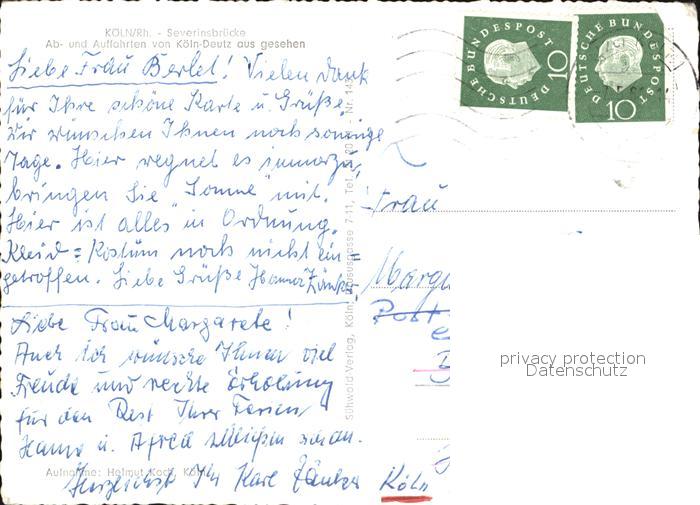 KÖLN/Rh. - Severinsbrücke
Ab- und Auffahrten von Köln-Deutz aus gesehen
Liebe Frau Berlet! Vielen Dank
für Ihre schöne Karte u. Grüße.
Wir wünschen Ihnen noch sonnige
Tage. Hier regnet es immerzu,
bringen Sie "Sonne" mit.
Hier ist alles in Ordnung.
Kleid = Kostüm noch nicht ein=
getroffen. Liebe Grüße Hanna
Liebe Frau Margarete!
Auch ich wünsche Ihnen viel
Freude und rechte Erholung
für den Rest Ihrer Ferien
Hanna u. schließen sich an.
Herzlichst Ihr Karl
Aufnahme: Helmut Koch, Köln
Schwald-Verlag, Köln 7-11, Tel.
DEUTSCHE BUNDESPOST
10
DEUTSCHE BUNDESPOST
10
Frau
Margu
Post
Köln
privacy protection
Datenschutz